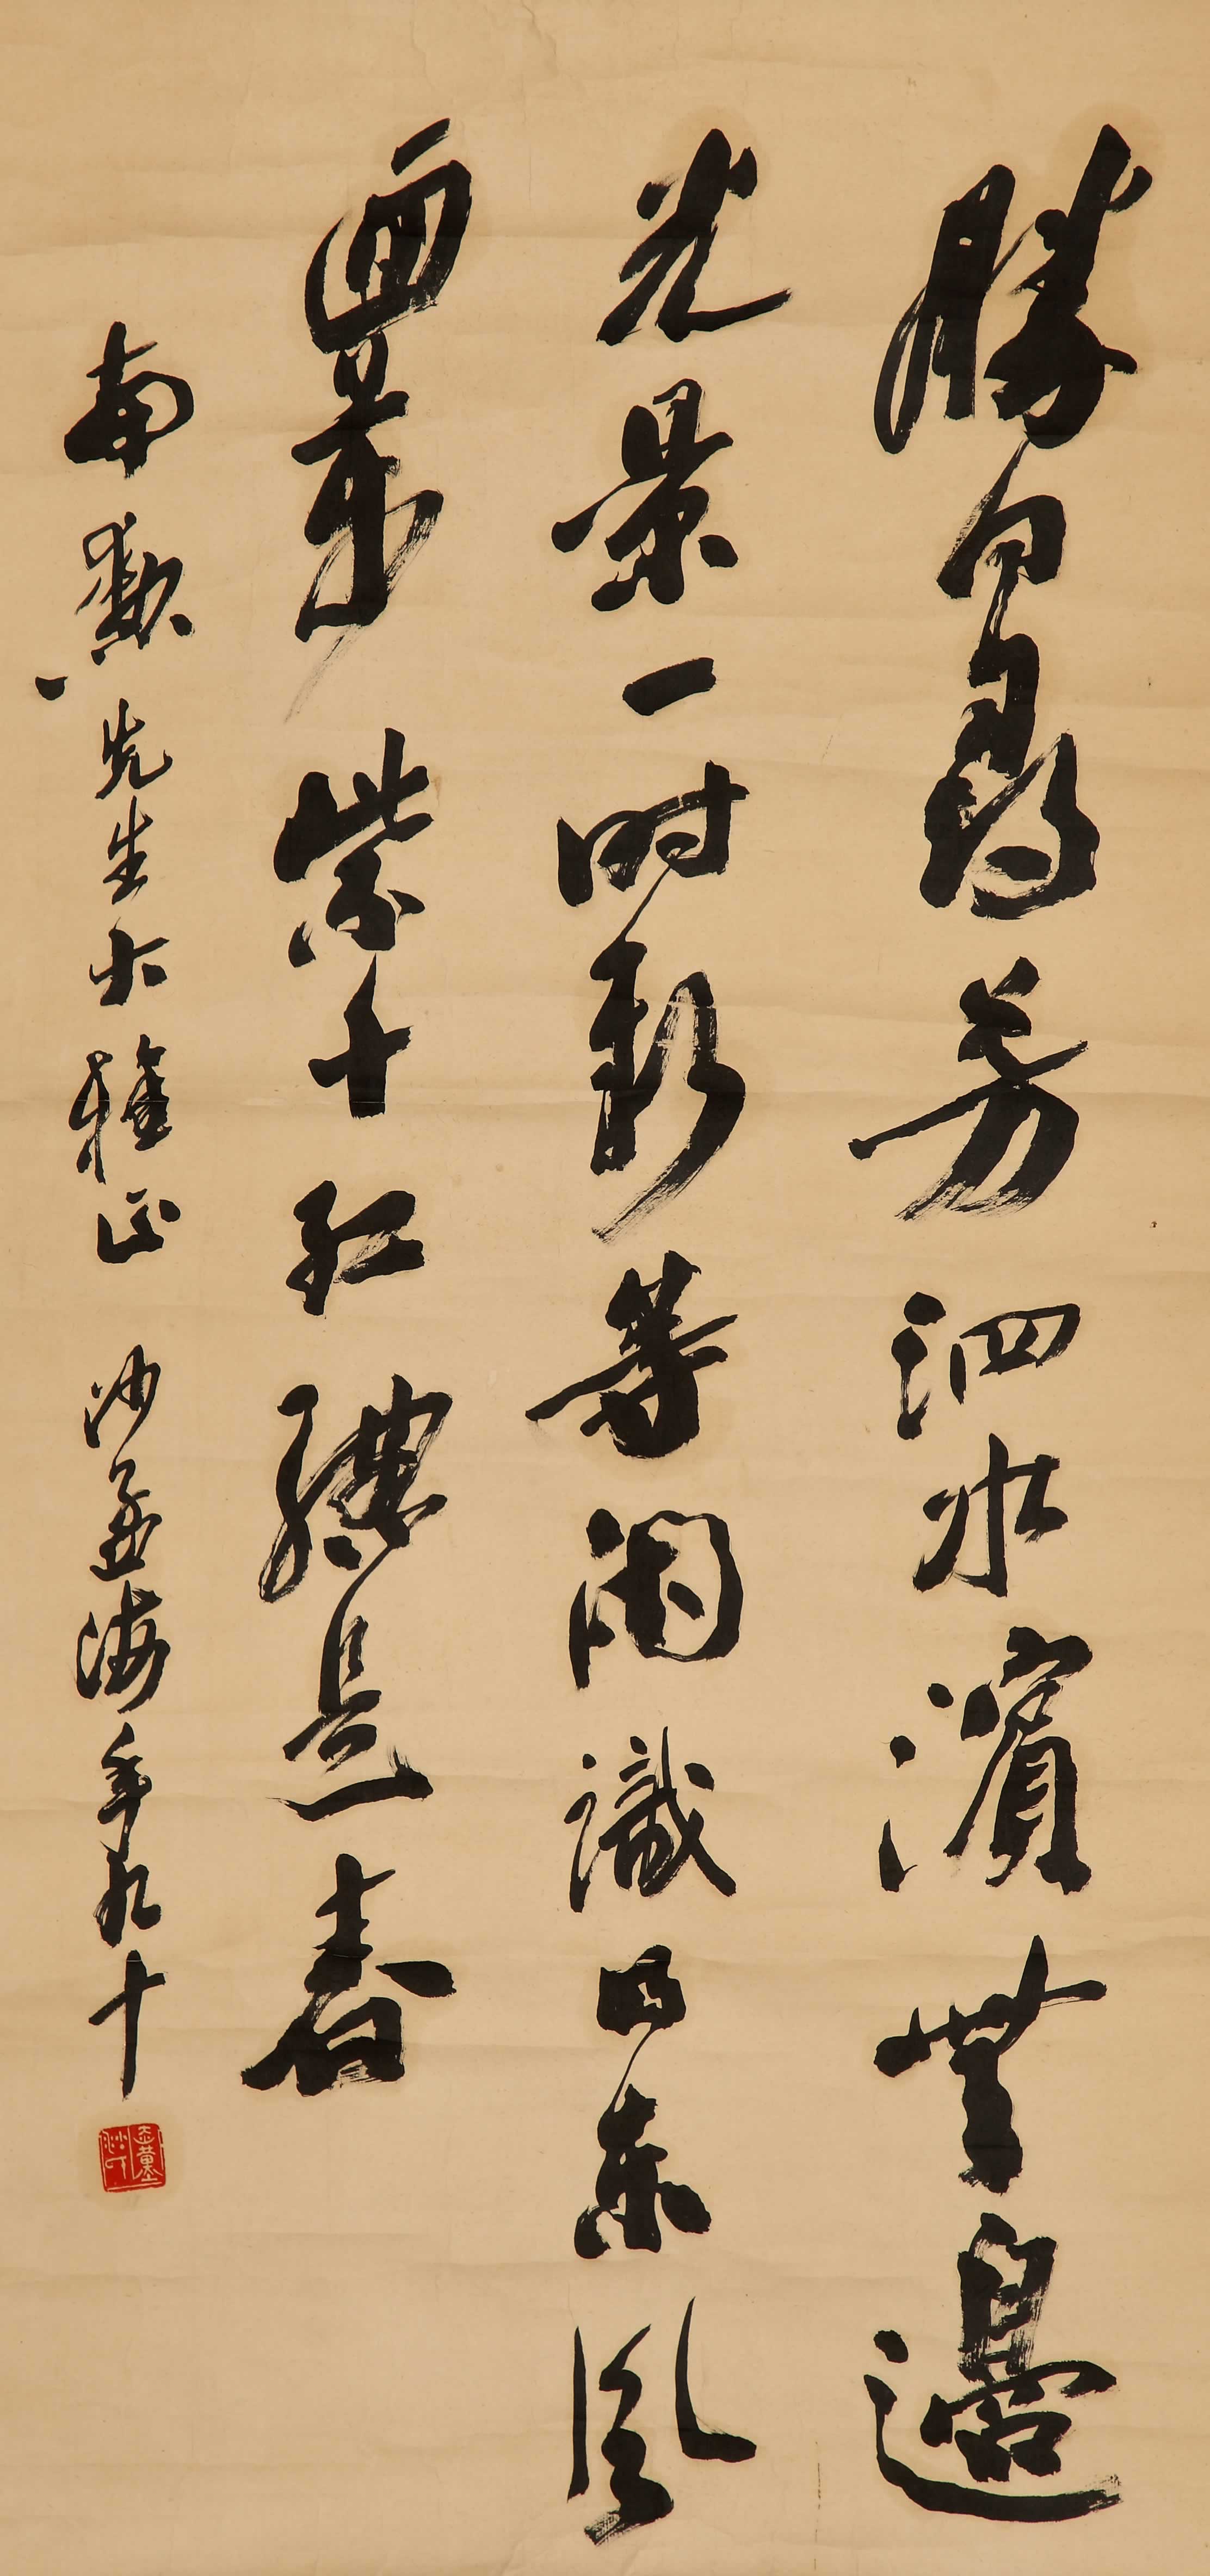 勝日尋芳泗水濱無邊
光景一時新等閒識東風
面萬紫千紅總是春
南先生大雅正 沙孟海年九十